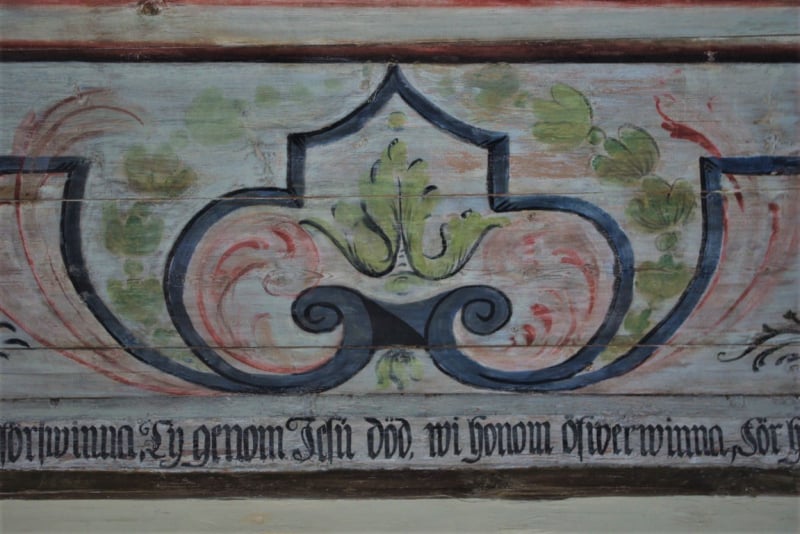 förswinna, Ty genom Jesu död, wi honom öfwerwinna, För h